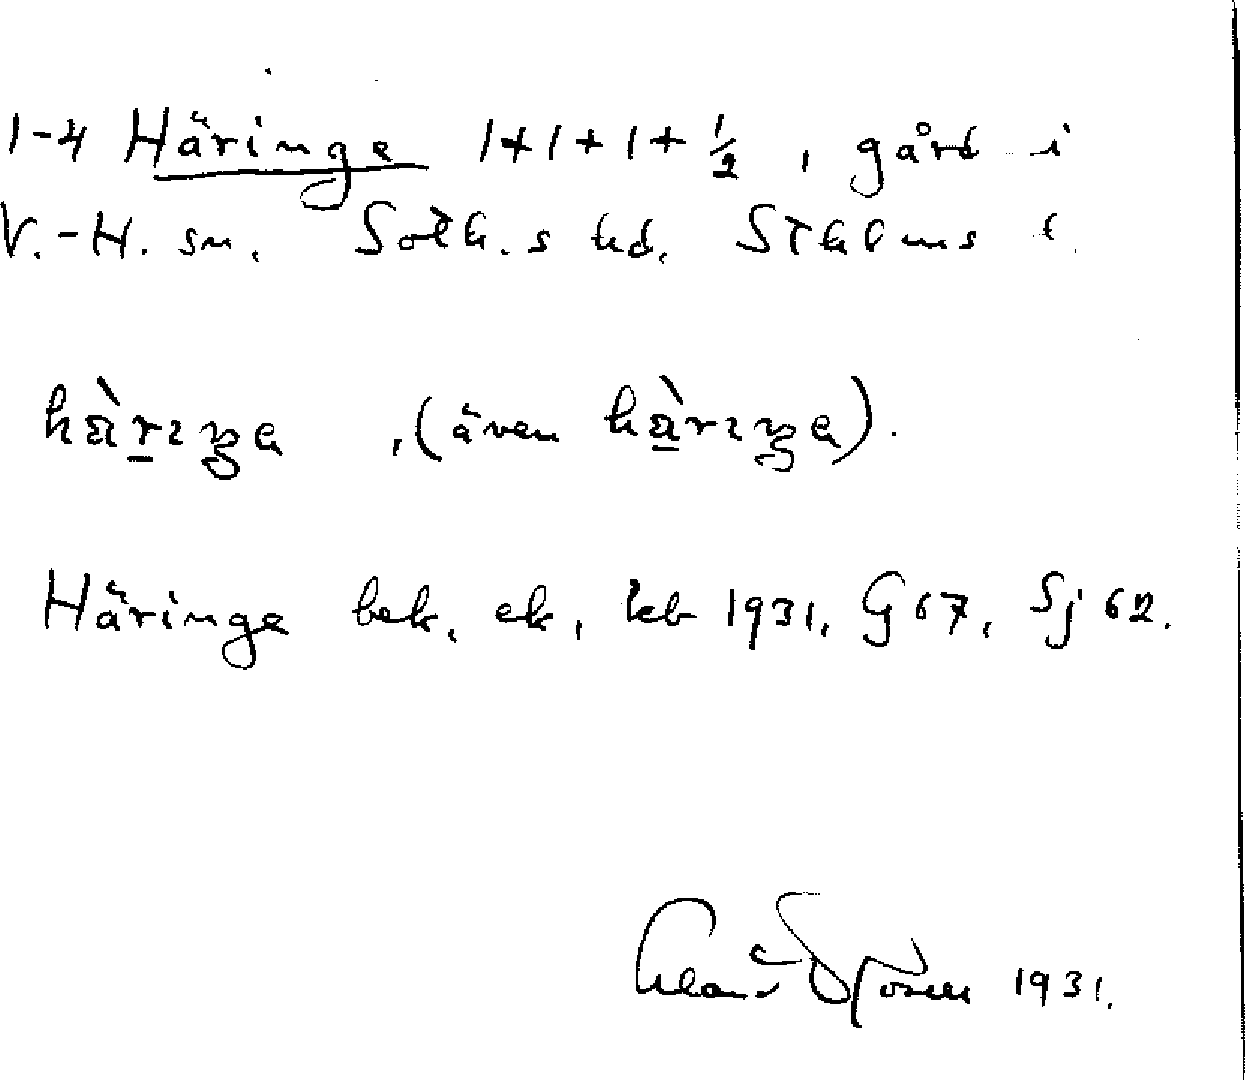 1-4 Häringe 1+1+1+½, gård i
V.-H. sn. Soth.s hd. Sthlms l.
hä̀riŋe, (även hä̀riŋe).
Häringe bek, ek, kb 1931, G 67, Sj 62.
1931.